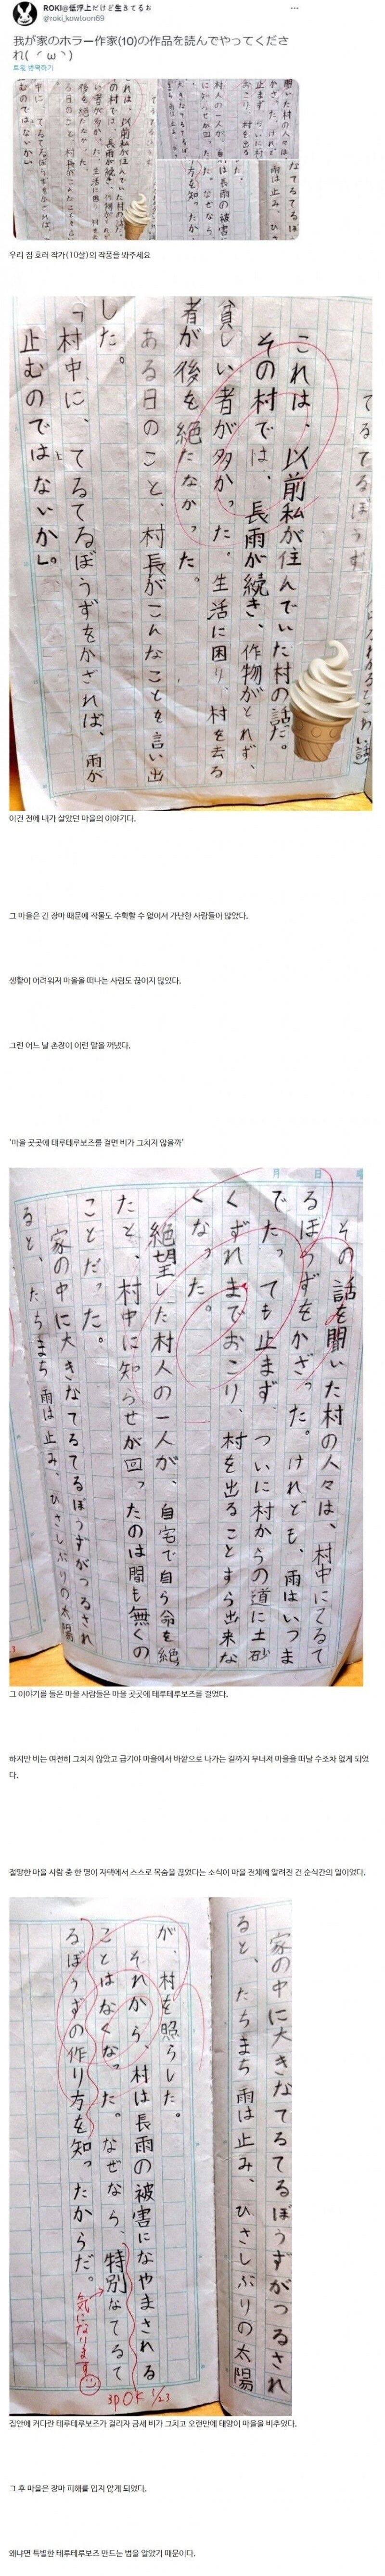 ROKI@低浮上だけど生きてるお
@roki_kowloon69
我が家のホラー作家(10)の作品を読んでやってくださ
れ(
트윗 번역하기
우리 집 호러 작가(10살)의 작품을 봐주세요
てるてるぼうず
これは、以前私が住んでいた村の話だ。
その村では、長雨が続き、作物がとれず、
貧しい者が多かった。生活に困り、村を去る
者が後を絶たなかった。
ある日のこと、村長がこんなことを言い出
した。
「村中に、てるてるぼうずをかざれば、雨が
止むのではないか」。
이건 전에 내가 살았던 마을의 이야기다.
그 마을은 긴 장마 때문에 작물도 수확할 수 없어서 가난한 사람들이 많았다.
생활이 어려워져 마을을 떠나는 사람도 끊이지 않았다.
그런 어느 날 촌장이 이런 말을 꺼냈다.
'마을 곳곳에 테루테루보즈를 걸면 비가 그치지 않을까'
月 日
その話を聞いた村の人々は、村中にてるて
るぼうずをかざった。けれども、雨はいつま
でたっても止まず、ついに村からの道に土砂
くずれまでおこり、村を出ることすら出来な
くなった。
絶望した村人の一人が、自宅で自ら命を絶
たと、村中に知らせが回ったのは間も無くの
ことだった。
家の中に大きなてるてるぼうずがつるされ
ると、たちまち雨は止み、ひさしぶりの太陽
그 이야기를 들은 마을 사람들은 마을 곳곳에 테루테루보즈를 걸었다.
하지만 비는 여전히 그치지 않았고 급기야 마을에서 바깥으로 나가는 길까지 무너져 마을을 떠날 수조차 없게 되었
다.
절망한 마을 사람 중 한 명이 자택에서 스스로 목숨을 끊었다는 소식이 마을 전체에 알려진 건 순식간의 일이었다.
家の中に大きなてるてるぼうずがつるされ
ると、たちまち雨は止み、ひさしぶりの太陽
が、村を照らした。
それから、村は長雨の被害になやまされる
ことはなくなった。なぜなら、特別なてるて
るぼうずの作り方を知ったからだ。
気になります
3P OK 1/23
집안에 커다란 테루테루보즈가 걸리자 금세 비가 그치고 오랜만에 태양이 마을을 비추었다.
그 후 마을은 장마 피해를 입지 않게 되었다.
왜냐면 특별한 테루테루보즈 만드는 법을 알았기 때문이다.